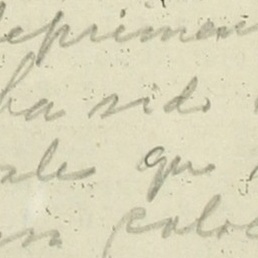 deprimen
ha sido
ales que
en coloc